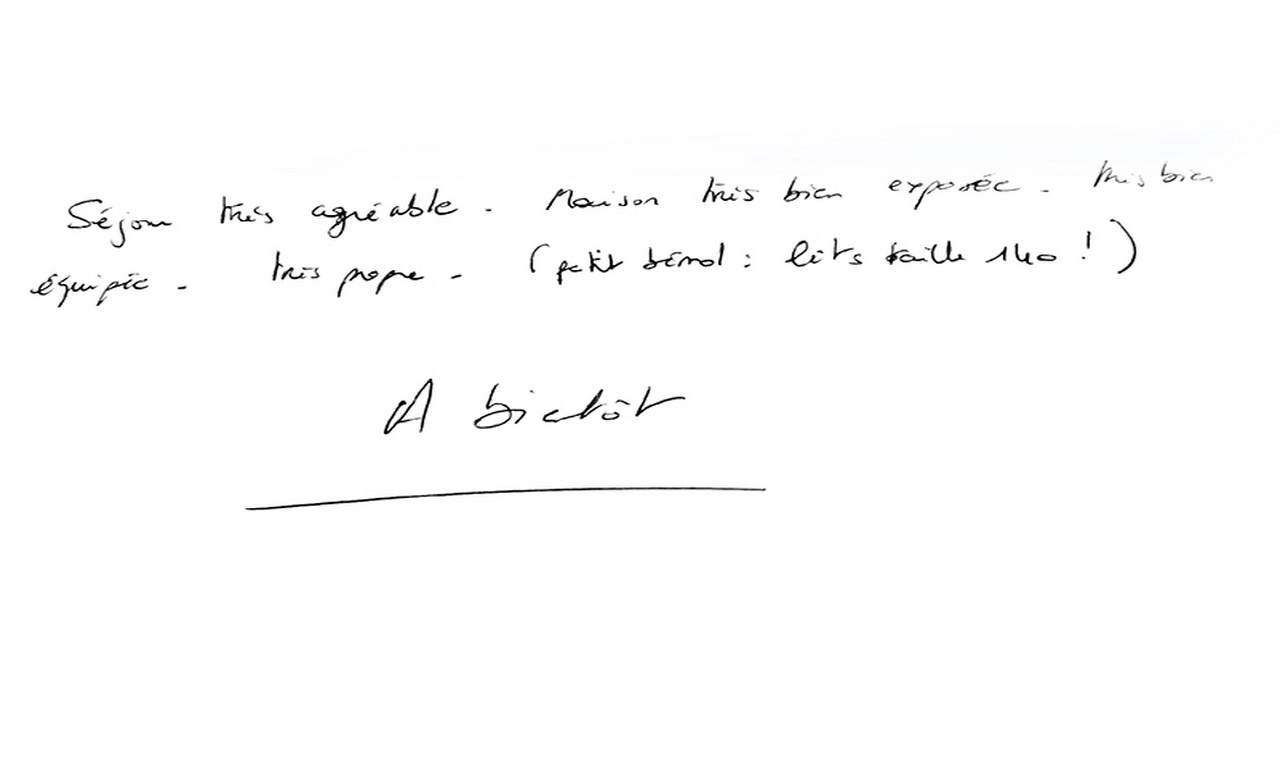 Séjour très agréable. Maison très bien exposée. Très bien
équipée. Très propre. (petit bémol : lits taille 140 !)
A bientôt